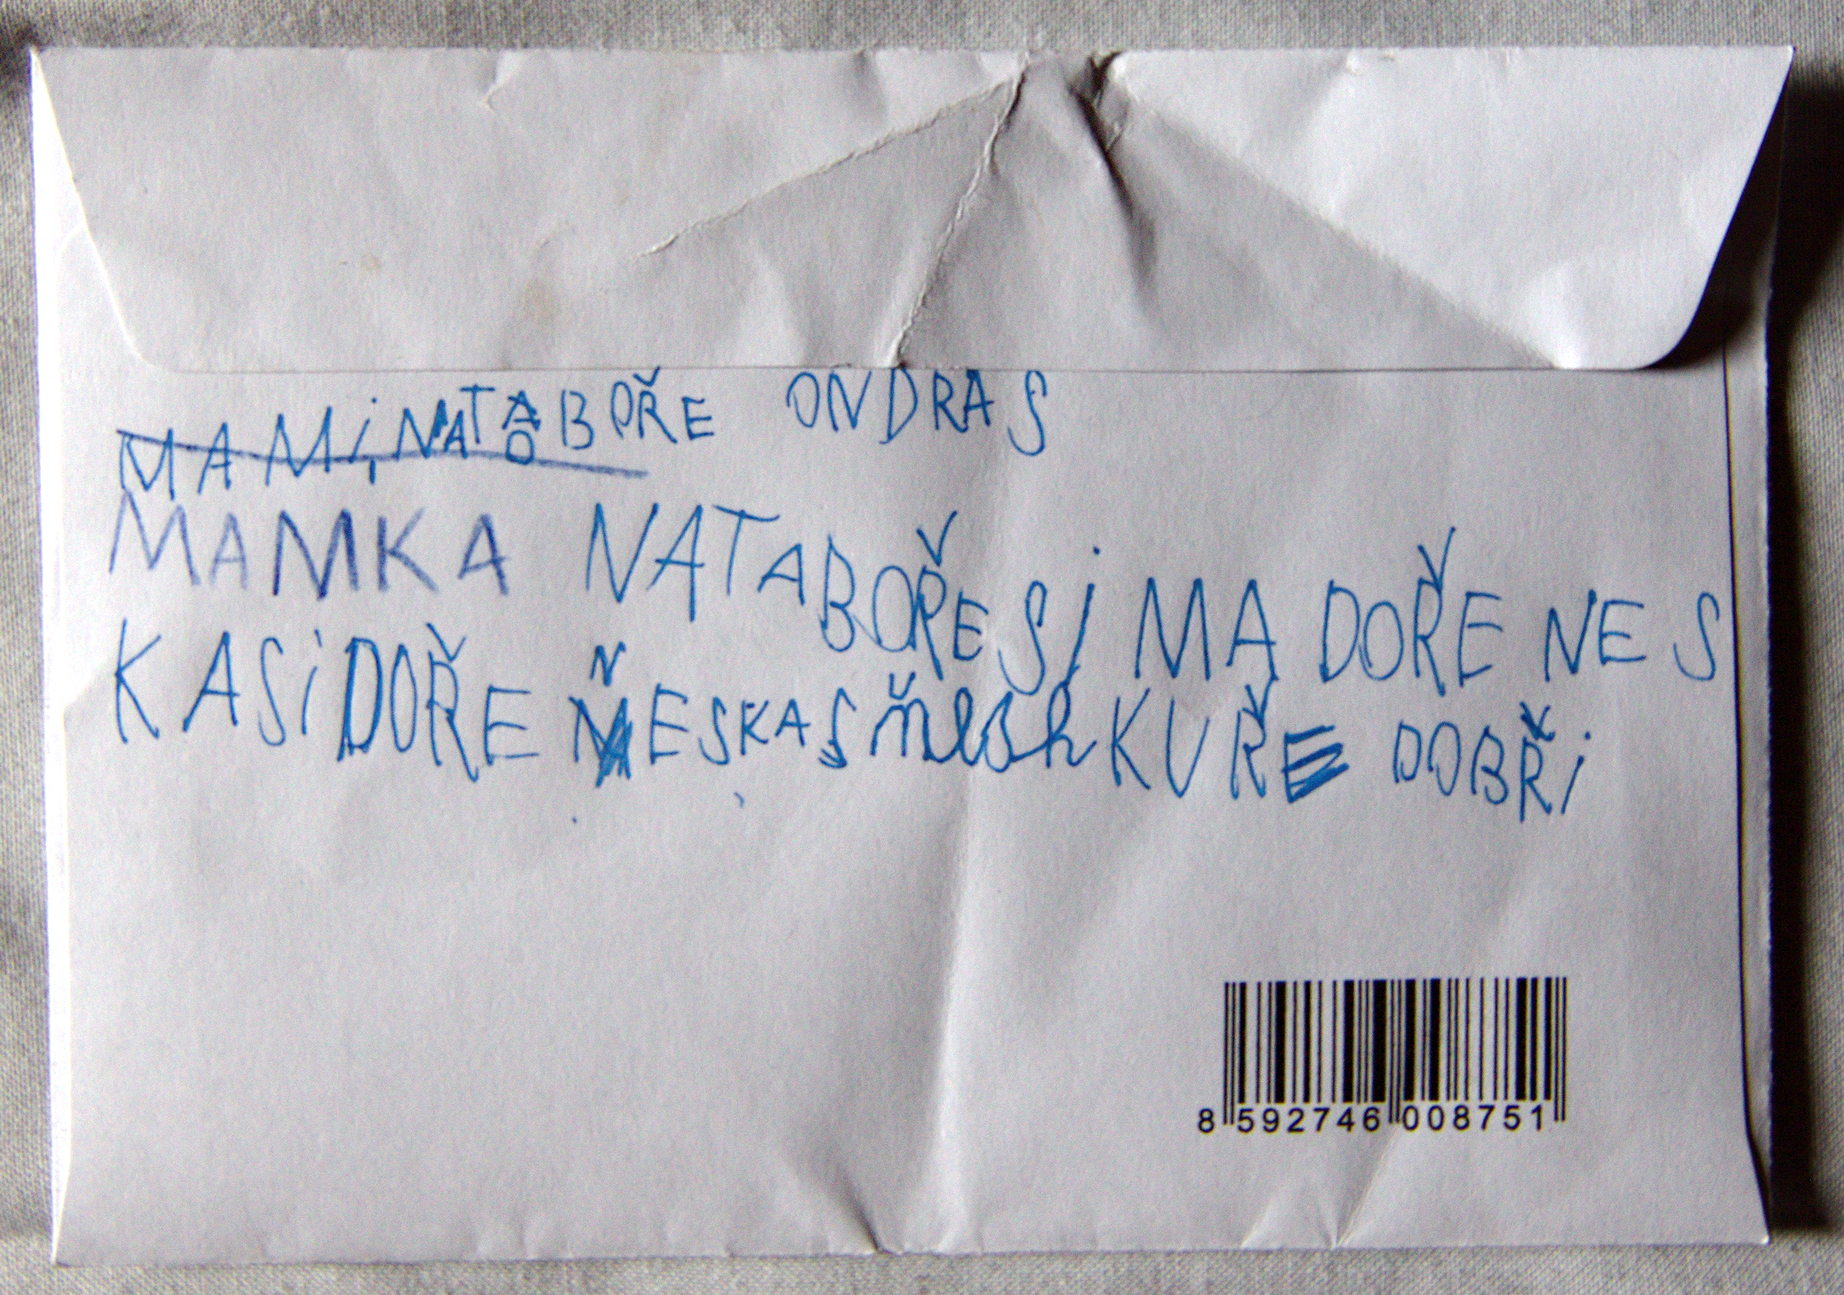 MAMi, NATABOŘE ONDRAS
MAMKA NATABOŘE Si MA DOŘE NE S
KASi DOŘE ŇESKAS KUŘE DOBŘi
8 592746 008751